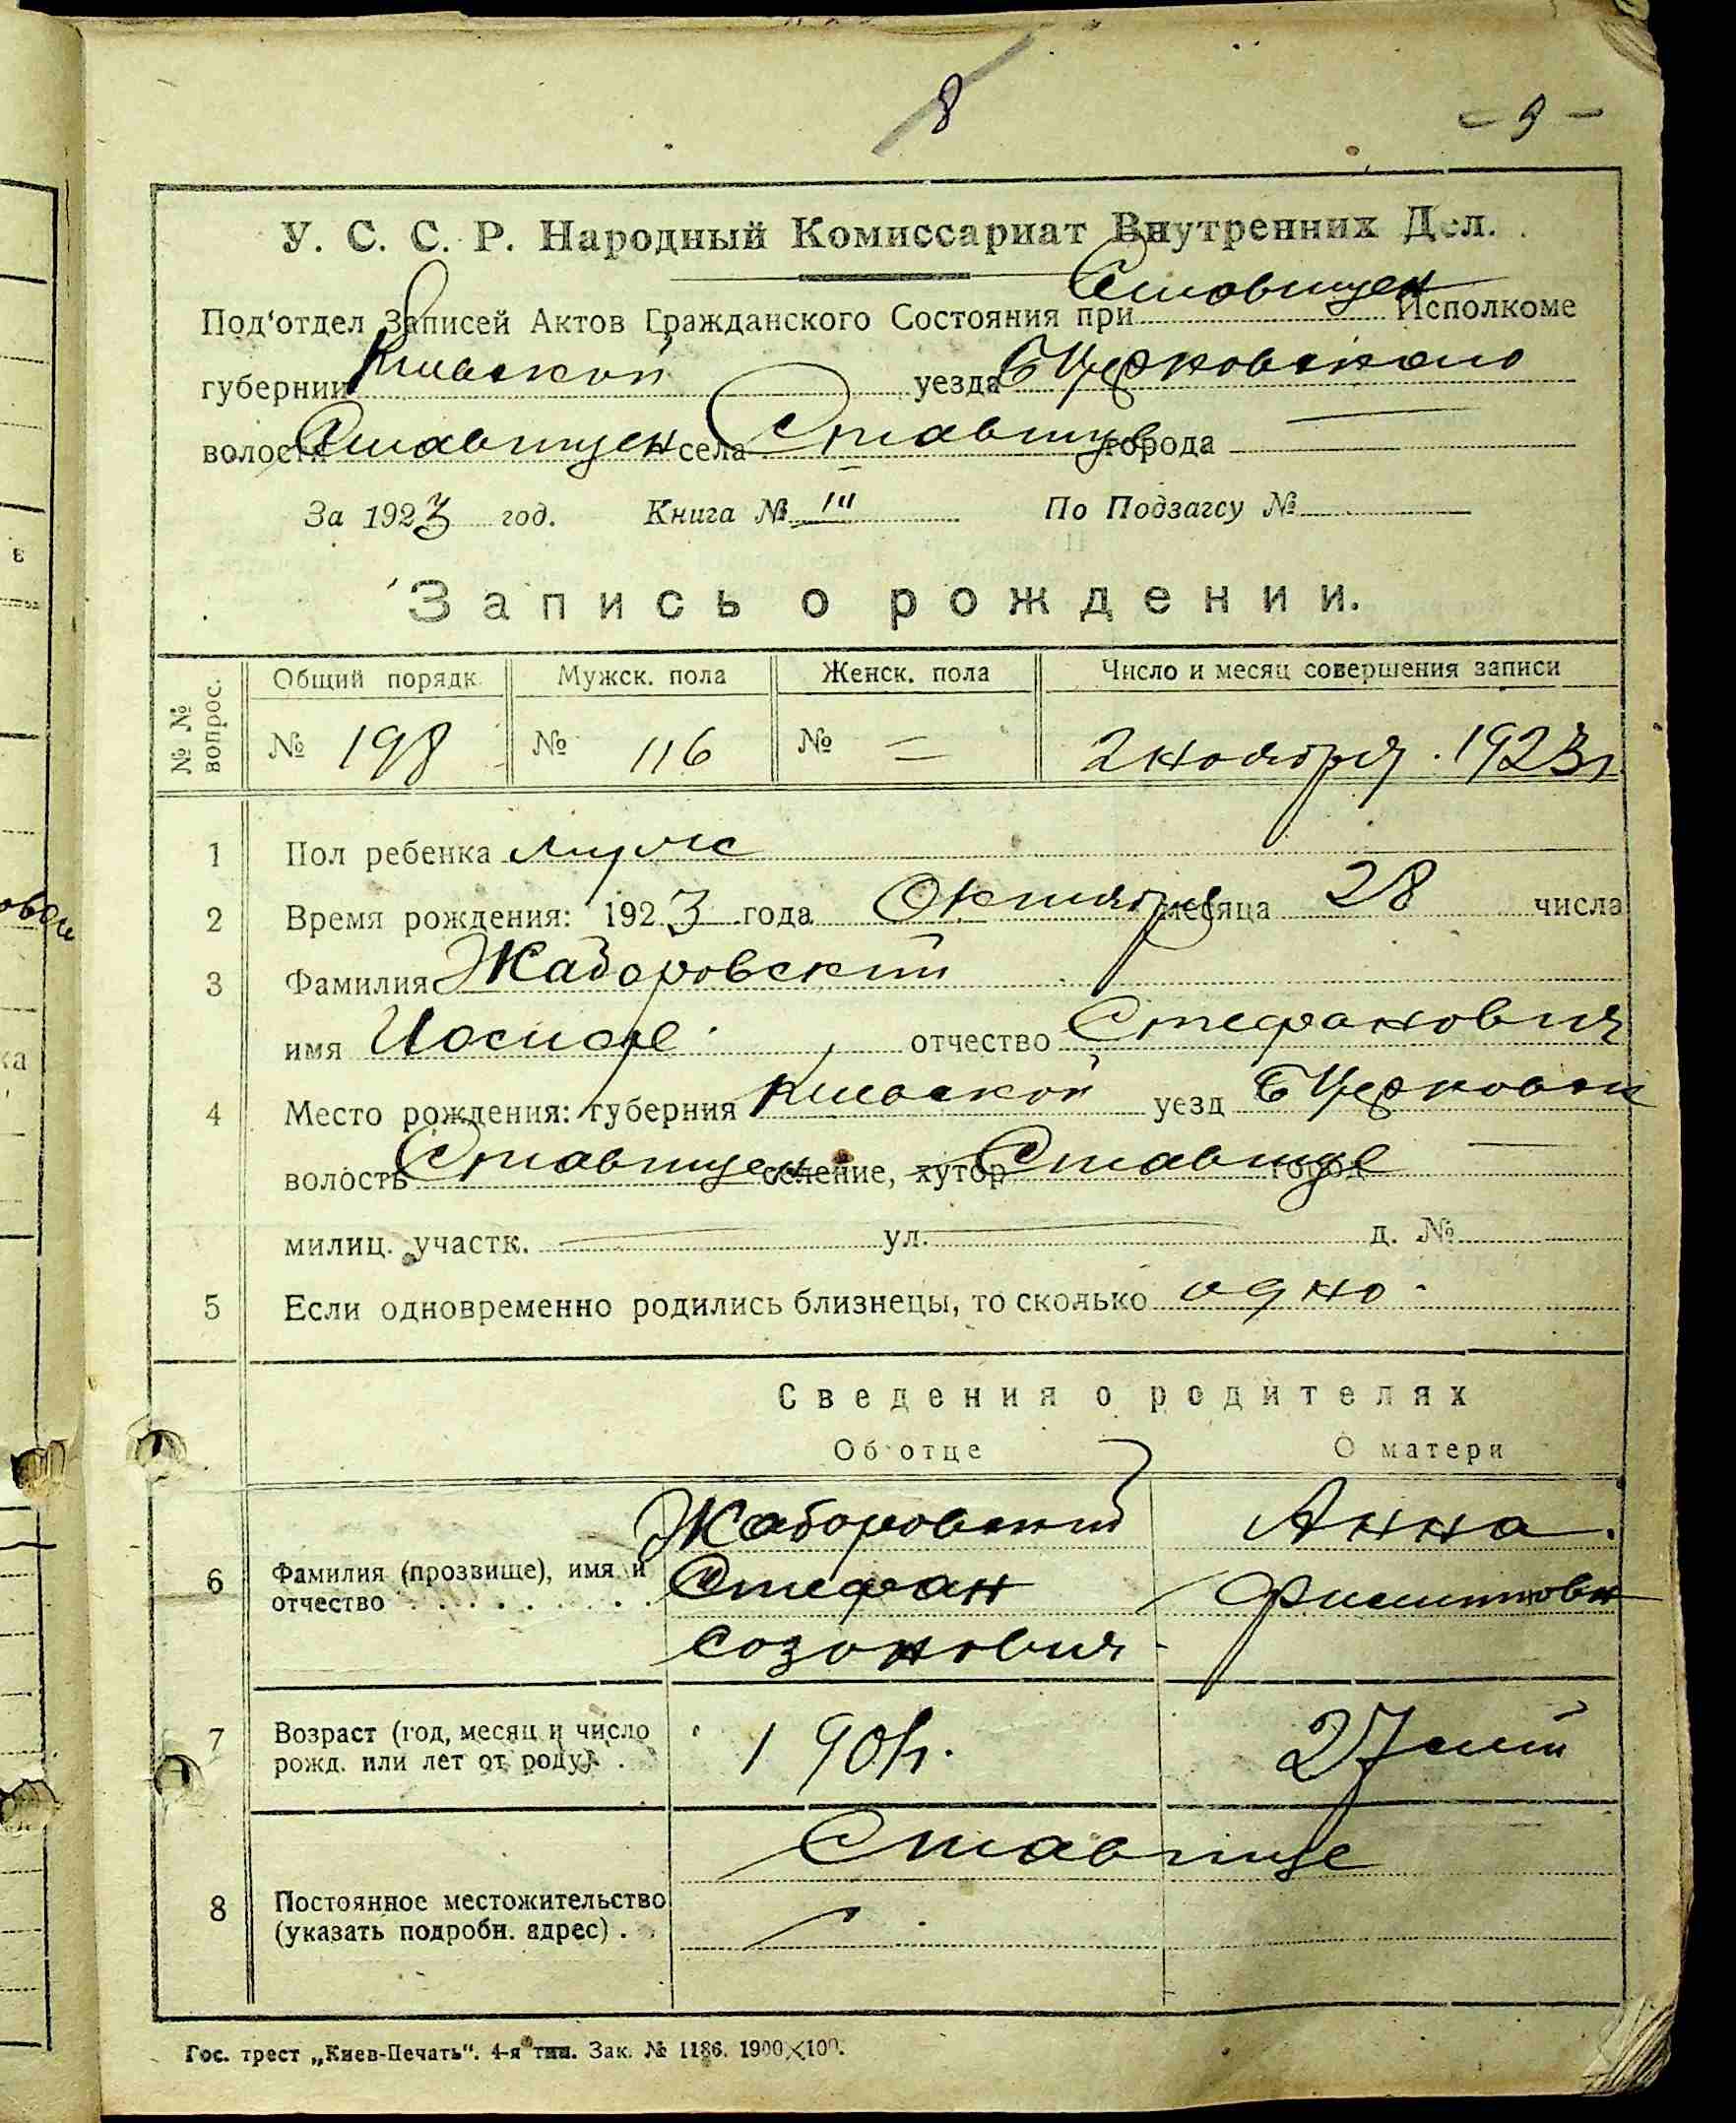 8
- 9 -
У. С. С. Р. Народный Комиссариат Внутренних Дел.
Под'отдел Записей Актов Гражданского Состояния при Ставищен Исполкоме
губернии Киевской уезда БЦерковского
волости Ставищен села Ставище города —
За 1923 год. Книга № III По Подзагсу №
Запись о рождении.
№ № вопрос. Общий порядк. Мужск. пола Женск. пола Число и месяц совершения записи
№ 198 № 116 № = 2 ноября . 1923 г
1 Пол ребенка муж
2 Время рождения: 1923 года Октября месяца 28 числа
3 Фамилия Жаборовский
имя Иосиф отчество Стефанович
4 Место рождения: губерния Киевской уезд БЦерковск
волость Ставищен селение, хутор Ставище город —
милиц. участк. — ул. — д. №
5 Если одновременно родились близнецы, то сколько одно.
Сведения о родителях
Об отце О матери
Жаборовский Анна.
6 Фамилия (прозвище), имя и отчество . . . Стефан Филипповн
Созонович
7 Возраст (год, месяц и число рожд. или лет от роду) . 1901 г. 27 лет
Ставище
8 Постоянное местожительство (указать подробн. адрес) .
Гос. трест „Киев-Печать“. 4-я тип. Зак. № 1186. 1900×100.